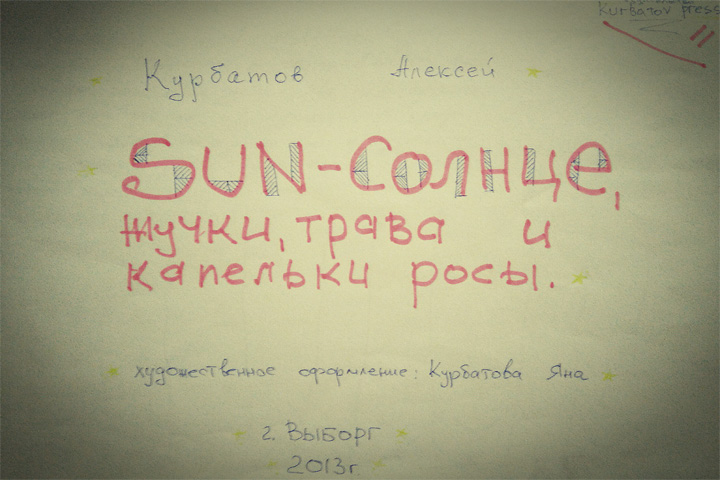 Kurbatov press
Курбатов Алексей
SUN-Солнце,
жучки, трава и
капельки росы.
художественное оформление: Курбатова Яна
г. Выборг
2013г